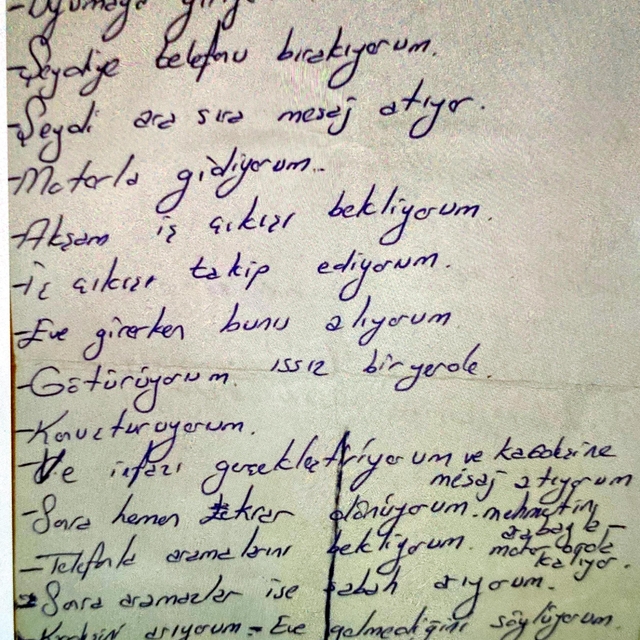 - Uyumaya
- Seydiye telefonu bırakıyorum.
- Seydi ara sıra mesaj atıyor.
- Motorla gidiyorum..
- Akşam iş çıkışı bekliyorum.
- İş çıkışı takip ediyorum.
- Eve girerken bunu alıyorum
- Götürüyorum. ıssız bir yerde.
- Konuşturuyorum.
- Ve infazı gerçekleştiriyorum ve
mesaj atıyorum
- Sora hemen tekrar dönüyorum.
arabayla -
- Telefonla aramalarını bekliyorum. motor orda
kalıyor.
- Sora aramazlar ise sabah arıyorum.
arıyorum - Eve gelmediğini söylüyorum.